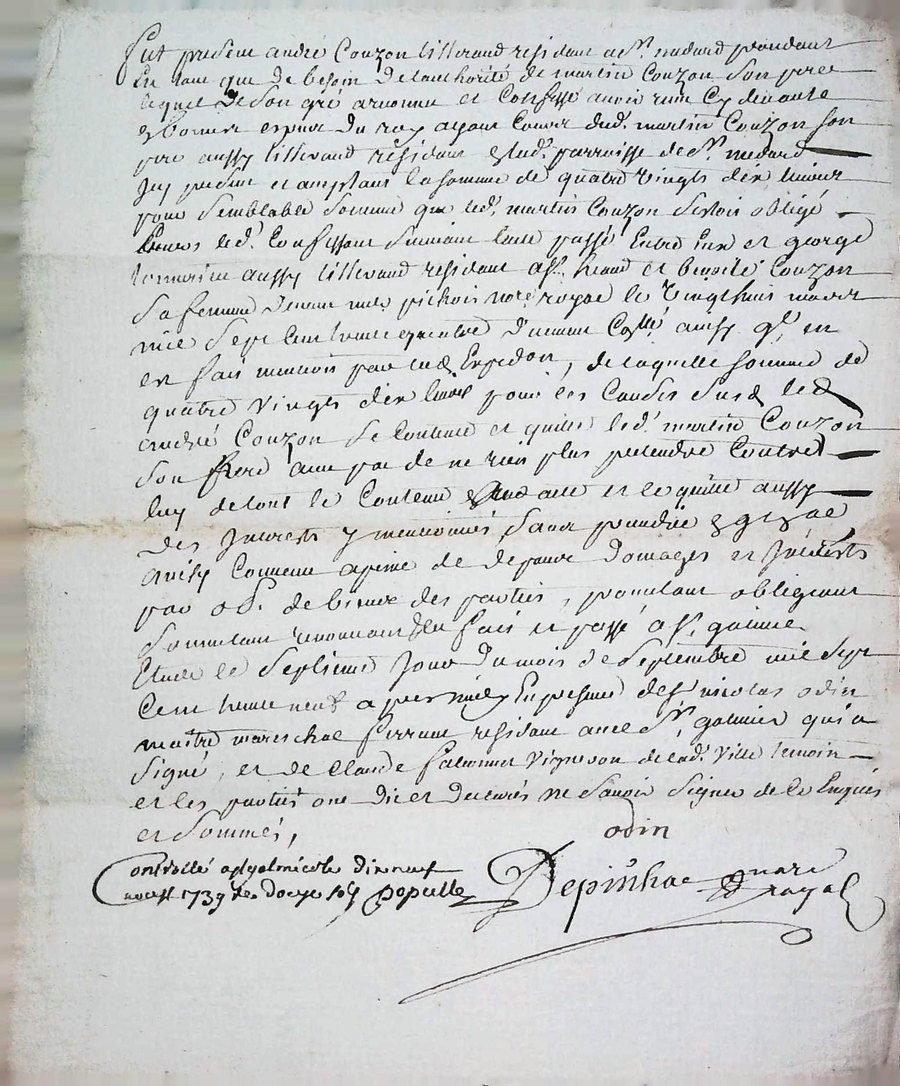 Fut present andré Couzon tisserand residant a St. medard procedant
En tant que de besoin de lauthorité de martin Couzon Son pere
lequel de Son gré a reconnu et Confessé avoir reçu Cy devant
Et bonnes especes du roy ayant Cours dud. martin Couzon Son
pere aussy tisserand résidant parroisse de St. medard
Icy present et acceptant la somme de quatre vingts dix livres
pour Semblable Somme que led. martin Couzon Sestoit obligé
Envers led. Confessant Suivant lacte passé Entre Eux et george
aussy tisserand residant a St. et benoite Couzon
Sa femme devant me pichois notre royal le vingthuit
mil Sept Cent trente quatre duement Collé ainsy ql. en
en fait mention par Expedon, de laquelle Somme de
quatre vingts dix livres pour les Causes Susd. led.
andré Couzon Se Contente et quitte led. martin Couzon
Son pere avec pac de ne rien plus pretendre Contre
luy de tout le Contenu acte et le quitte aussy
des Interests y mentionnés, Sans
ainsy Convenu a peine de depens domages et Interests
par obl. de biens des parties, promettant obligeant
Soumettant renonceant fait et passé a St. galmier
Etude le Septieme Jour du mois de Septembre mil Sept
Cent trente neuf apres midy En presence de Sr. nicolas odin
maitre mareschal ferrant residant aud. St. galmier qui a
Signé, et de Claude vigneron de lad. ville temoin
et les parties ont dit et declarés ne Savoir Signer de ce Enquis
et Sommés,
odin
Controllé a St galmier le
1739 Depulle
Depinhac nore
royal